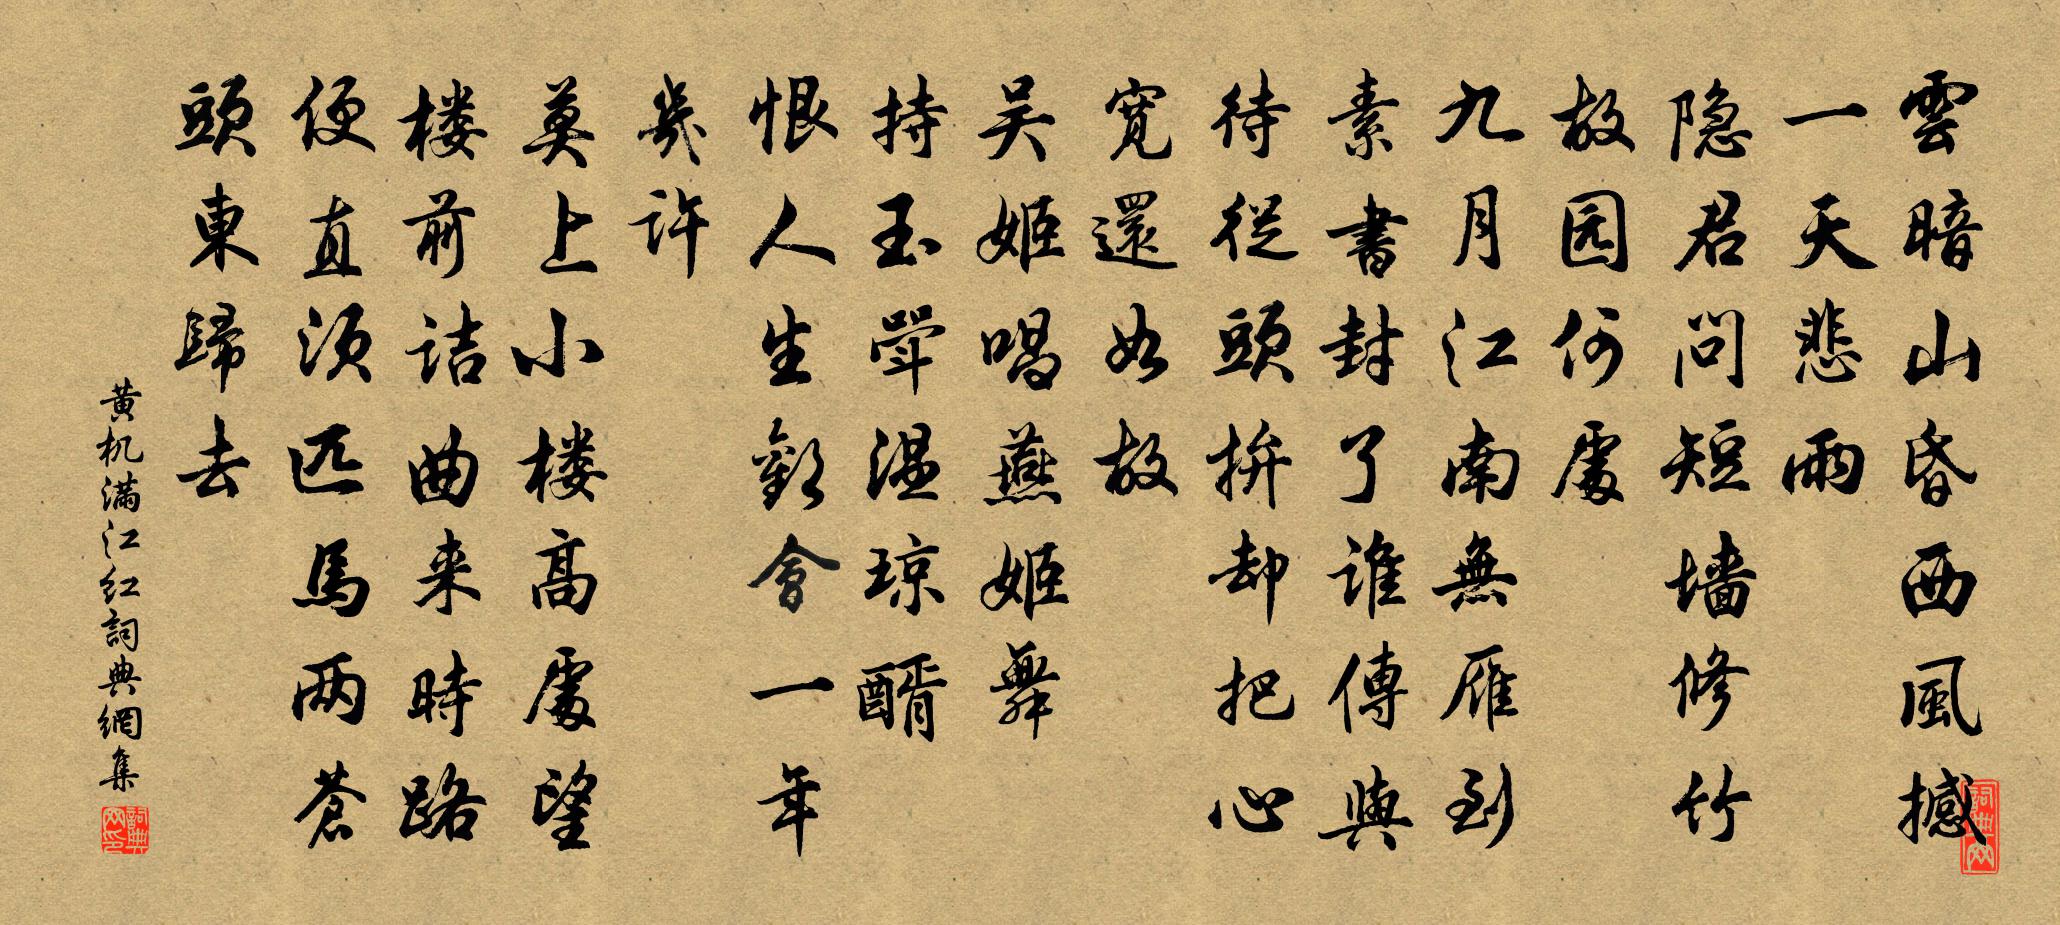 雲暗山昏西風撼
一天悲雨
隐君問短墙修竹
故园何處
九月江南無雁到
素書封了谁傳與
待從頭拚却把心
寬還如故
吴姬唱燕姬舞
持玉斝温琼醑
恨人生歡會一年
幾許
莫上小楼高處望
楼前詰曲来時路
便直须匹馬两蒼
頭東歸去
黄机满江红詞典網集
詞典网
詞典网印